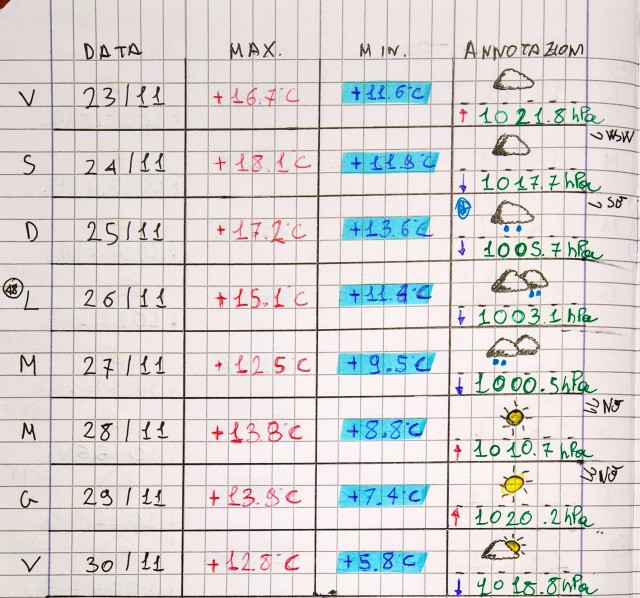 DATA MAX. MIN. ANNOTAZIONI
V 23/11 +16.7°C +11.6°C ↑ 1021.8 hPa
WSW
S 24/11 +18.1°C +11.9°C ↓ 1017.7 hPa
SO
D 25/11 +17.2°C +13.6°C ↓ 1005.7 hPa
48 L 26/11 +15.1°C +11.4°C ↓ 1003.1 hPa
M 27/11 +12.5°C +9.5°C ↓ 1000.5 hPa
NO
M 28/11 +13.8°C +8.8°C ↑ 1010.7 hPa
NO
G 29/11 +13.9°C +7.4°C ↑ 1020.2 hPa
V 30/11 +12.8°C +5.8°C ↓ 1018.8 hPa